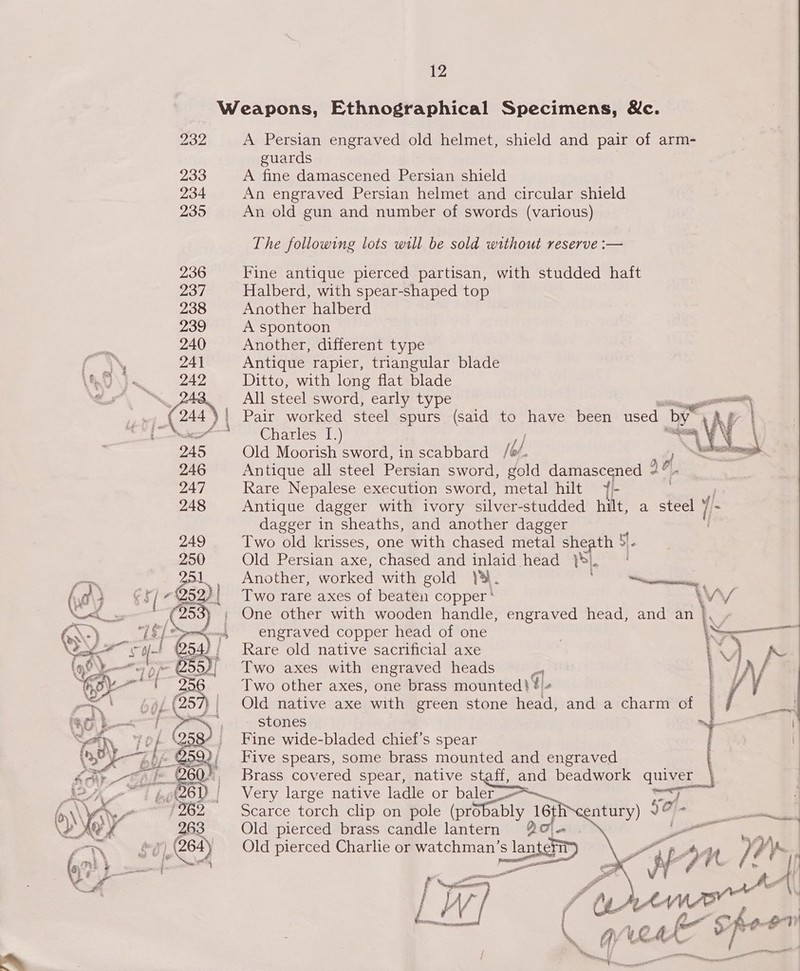 12
Weapons, Ethnographical Specimens, &c.
232 A Persian engraved old helmet, shield and pair of arm-
guards
233 A fine damascened Persian shield
234 An engraved Persian helmet and circular shield
235 An old gun and number of swords (various)
The following lots will be sold without reserve :—
236 Fine antique pierced partisan, with studded haft
237 Halberd, with spear-shaped top
238 Another halberd
239 A spontoon
240 Another, different type
241 Antique rapier, triangular blade
242 Ditto, with long flat blade
243 All steel sword, early type
244 Pair worked steel spurs (said to have been used by
Charles I.)
245 Old Moorish sword, in scabbard
246 Antique all steel Persian sword, gold damascened
247 Rare Nepalese execution sword, metal hilt
248 Antique dagger with ivory silver-studded hilt, a steel
dagger in sheaths, and another dagger
249 Two old krisses, one with chased metal sheath
250 Old Persian axe, chased and inlaid head
251 Another, worked with gold
252 Two rare axes of beaten copper
253 One other with wooden handle, engraved head, and an
engraved copper head of one
254 Rare old native sacrificial axe
255 Two axes with engraved heads
256 Two other axes, one brass mounted
257 Old native axe with green stone head, and a charm of
stones
258 Fine wide-bladed chief's spear
259 Five spears, some brass mounted and engraved
260 Brass covered spear, native staff, and beadwork quiver
261 Very large native ladle or baler
262 Scarce torch clip on pole (probably 16th century)
263 Old pierced brass candle lantern
264 Old pierced Charlie or watchman's lantern
W
great spoon